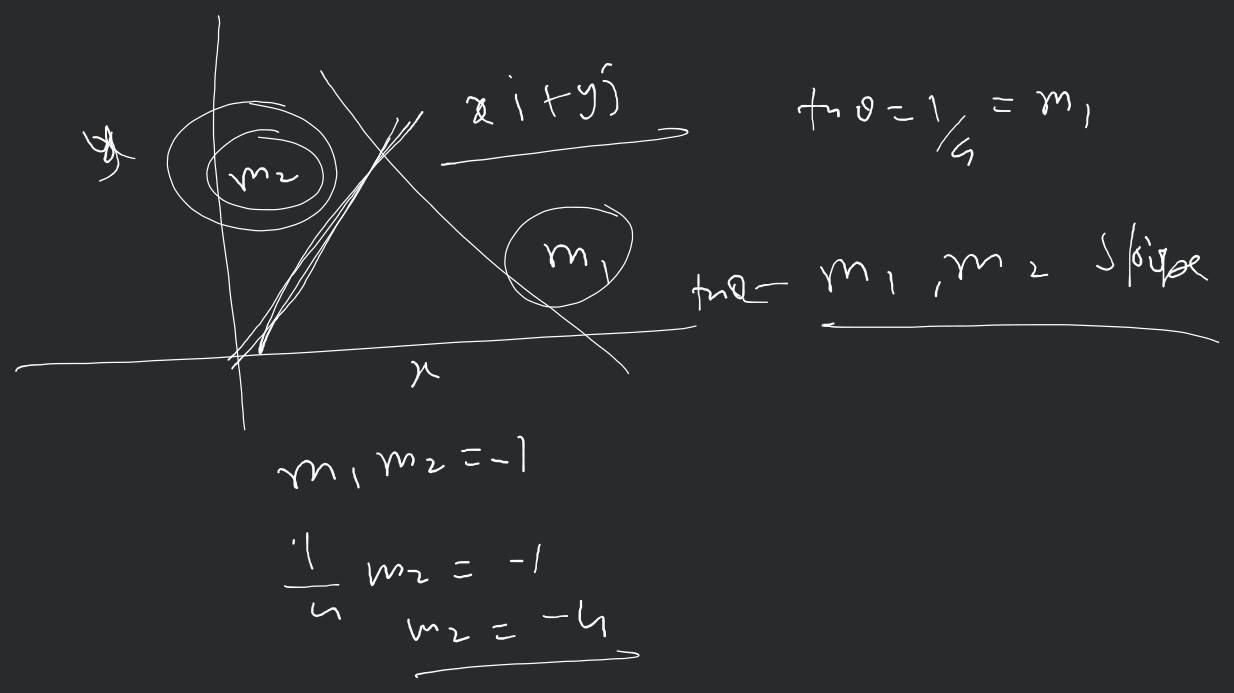 x i + y j
tnθ = 1/4 = m1
y
m2
m1
tnθ - m1, m2 slope
x
m1 m2 = -1
1/4 m2 = -1
m2 = -4